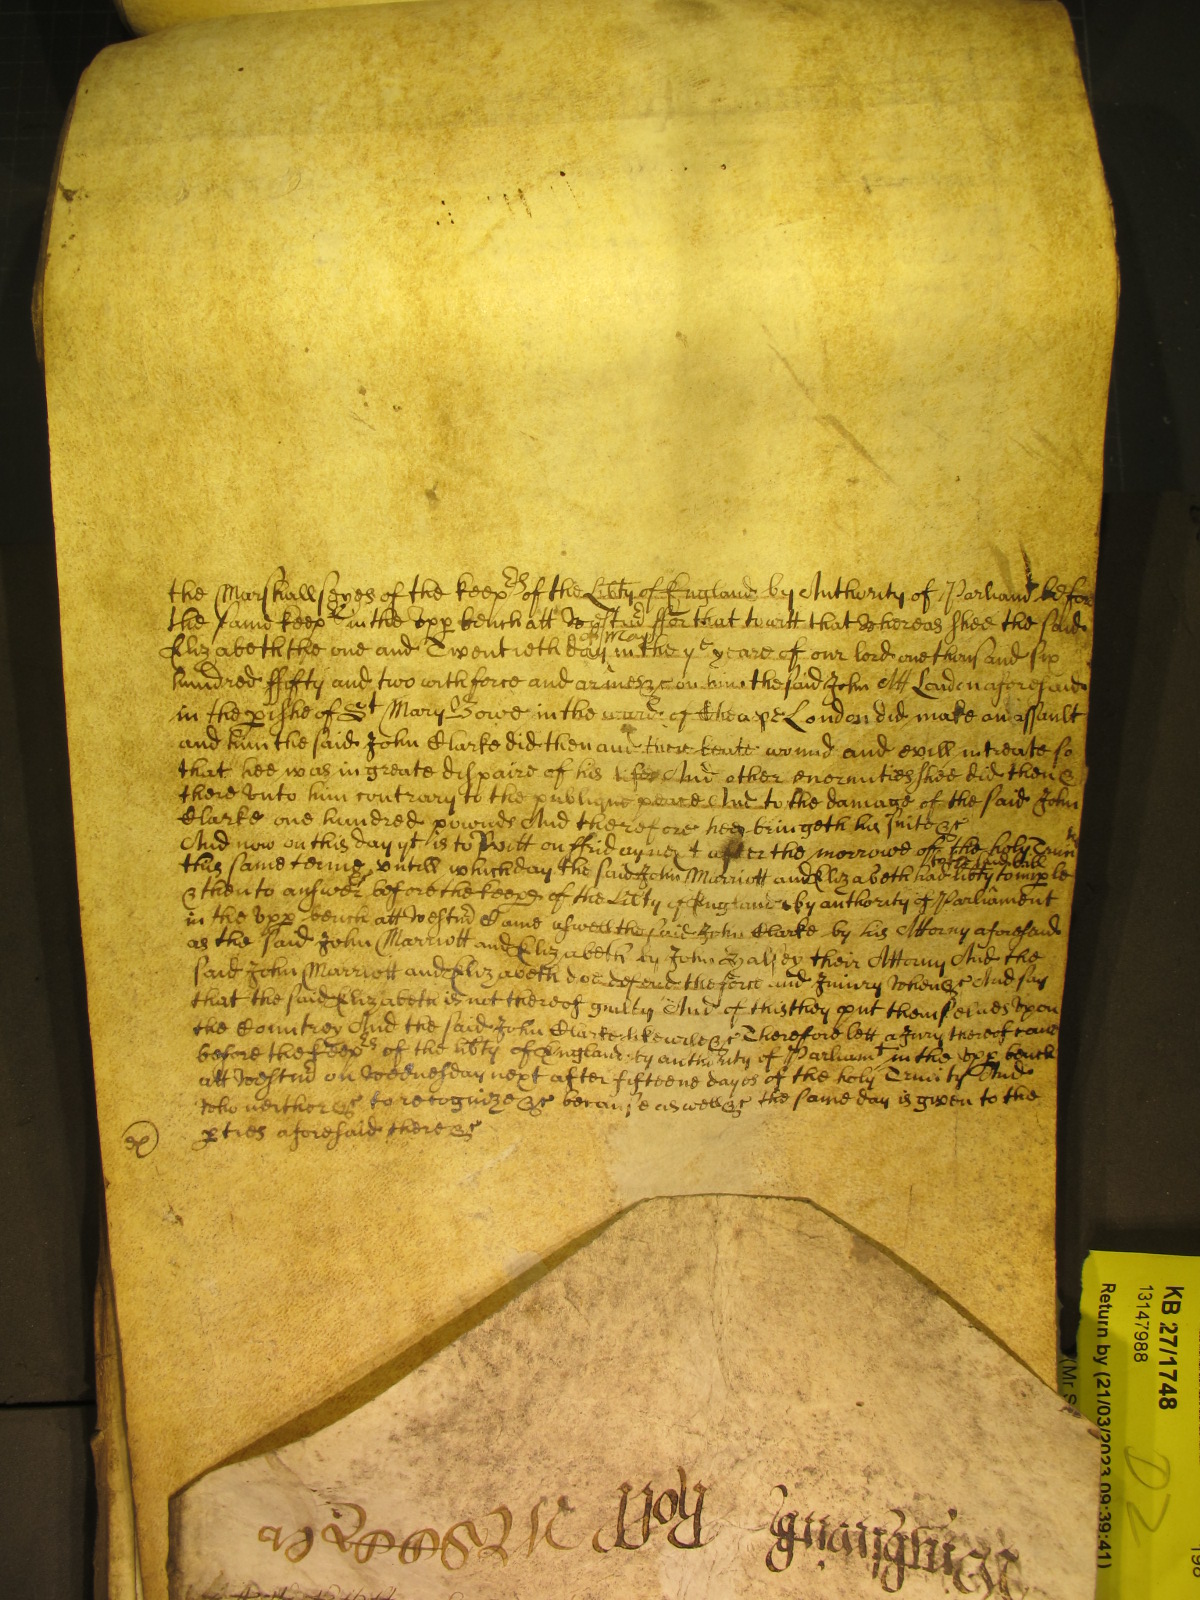 the Marshallseyes of the keepers of the Libty of England by Authority of Parliamt before
the same keeprs in the Vpp bench att Westmr ffor that to witt that Whereas shee the said
of May
Elizabeth the one and Twentieth day in the ye yeare of our lord one thousand six
hundred fifty and two with force and armes &c on him the said John Att London aforesaid
in the pishe of St Mary Bowe in the ward of Cheape London did make an assault
and him the said John Clarke did then and there beate wound and evill intreate so
that hee was in greate dispaire of his life And other enormities shee did then &
there vnto him contrary to the publique peace And to the damage of the said John
Clarke one hundred pounds And therefore hee bringeth his suite &c
And now on this day yt is to Witt on ffriday next after the morrowe of the holy Trinity
to the said bill
this same terme vntill which day the said John Marriott and Elizabeth had libty to imple
& then to answer before the keeps of the Libty of England by authority of Parliament
in the Vpp bench att Westmr Came aswell the said John Clarke by his Attorny aforesaid
as the said John Marriott and Elizabeth by John their Attorny And the
said John Marriott and Elizabeth doe defend the force and Iniury When &c And say
that the said Elizabeth is not thereof guilty And of this they put themselves Vpon
the Countrey And the said John Clarke likewise &c Therefore lett a Iury thereof come
before the keeprs of the libty of England by authority of Parliamt in the Vpp bench
att Westmr on Wednesday next after fifteene dayes of the holy Trinity And
who neither &c to recognize &c because aswell &c the same day is given to the
pties aforesaid there &c
Roll
KB 27/1748
13147988
Return by (21/03/2023 09:39:41)
(Mr S
D2